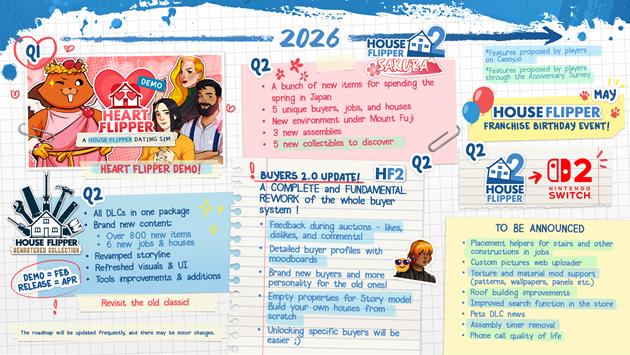 2026
Q1
DEMO
HEART
FLIPPER
A HOUSE FLIPPER DATING SIM
HEART FLIPPER DEMO!
Q2
HOUSE
FLIPPER 2
SAKURA
• A bunch of new items for spending the
spring in Japan
• 5 unique buyers, jobs, and houses
• New environment under Mount Fuji
• 3 new assemblies
• 5 new collectibles to discover
*Features proposed by players
on Canny.io
*Features proposed by players
through the Anniversary Survey
MAY
HOUSE FLIPPER
FRANCHISE BIRTHDAY EVENT!
Q2
HOUSE
FLIPPER
2
2
NINTENDO
SWITCH
HOUSE FLIPPER
REMASTERED COLLECTION
DEMO = FEB
RELEASE = APR
Q2
• All DLCs in one package
• Brand new content:
• Over 800 new items
• 6 new jobs & houses
• Revamped storyline
• Refreshed visuals & UI
• Tools improvements & additions
Revisit the old classic!
The roadmap will be updated frequently, and there may be minor changes.
Q2
! BUYERS 2.0 UPDATE! HF2
A COMPLETE and FUNDAMENTAL
REWORK of the whole buyer
system !
• Feedback during auctions - likes,
dislikes, and comments!
• Detailed buyer profiles with
moodboards
• Brand new buyers and more
personality for the old ones!
• Empty properties for Story mode!
Build your own houses from
scratch
• Unlocking specific buyers will be
easier ;)
TO BE ANNOUNCED
• Placement helpers for stairs and other
constructions in jobs
• Custom pictures web uploader
• Texture and material mod support
(patterns, wallpapers, panels etc.)
• Roof building improvements
• Improved search function in the store
• Pets DLC news
• Assembly timer removal
• Phone call quality of life